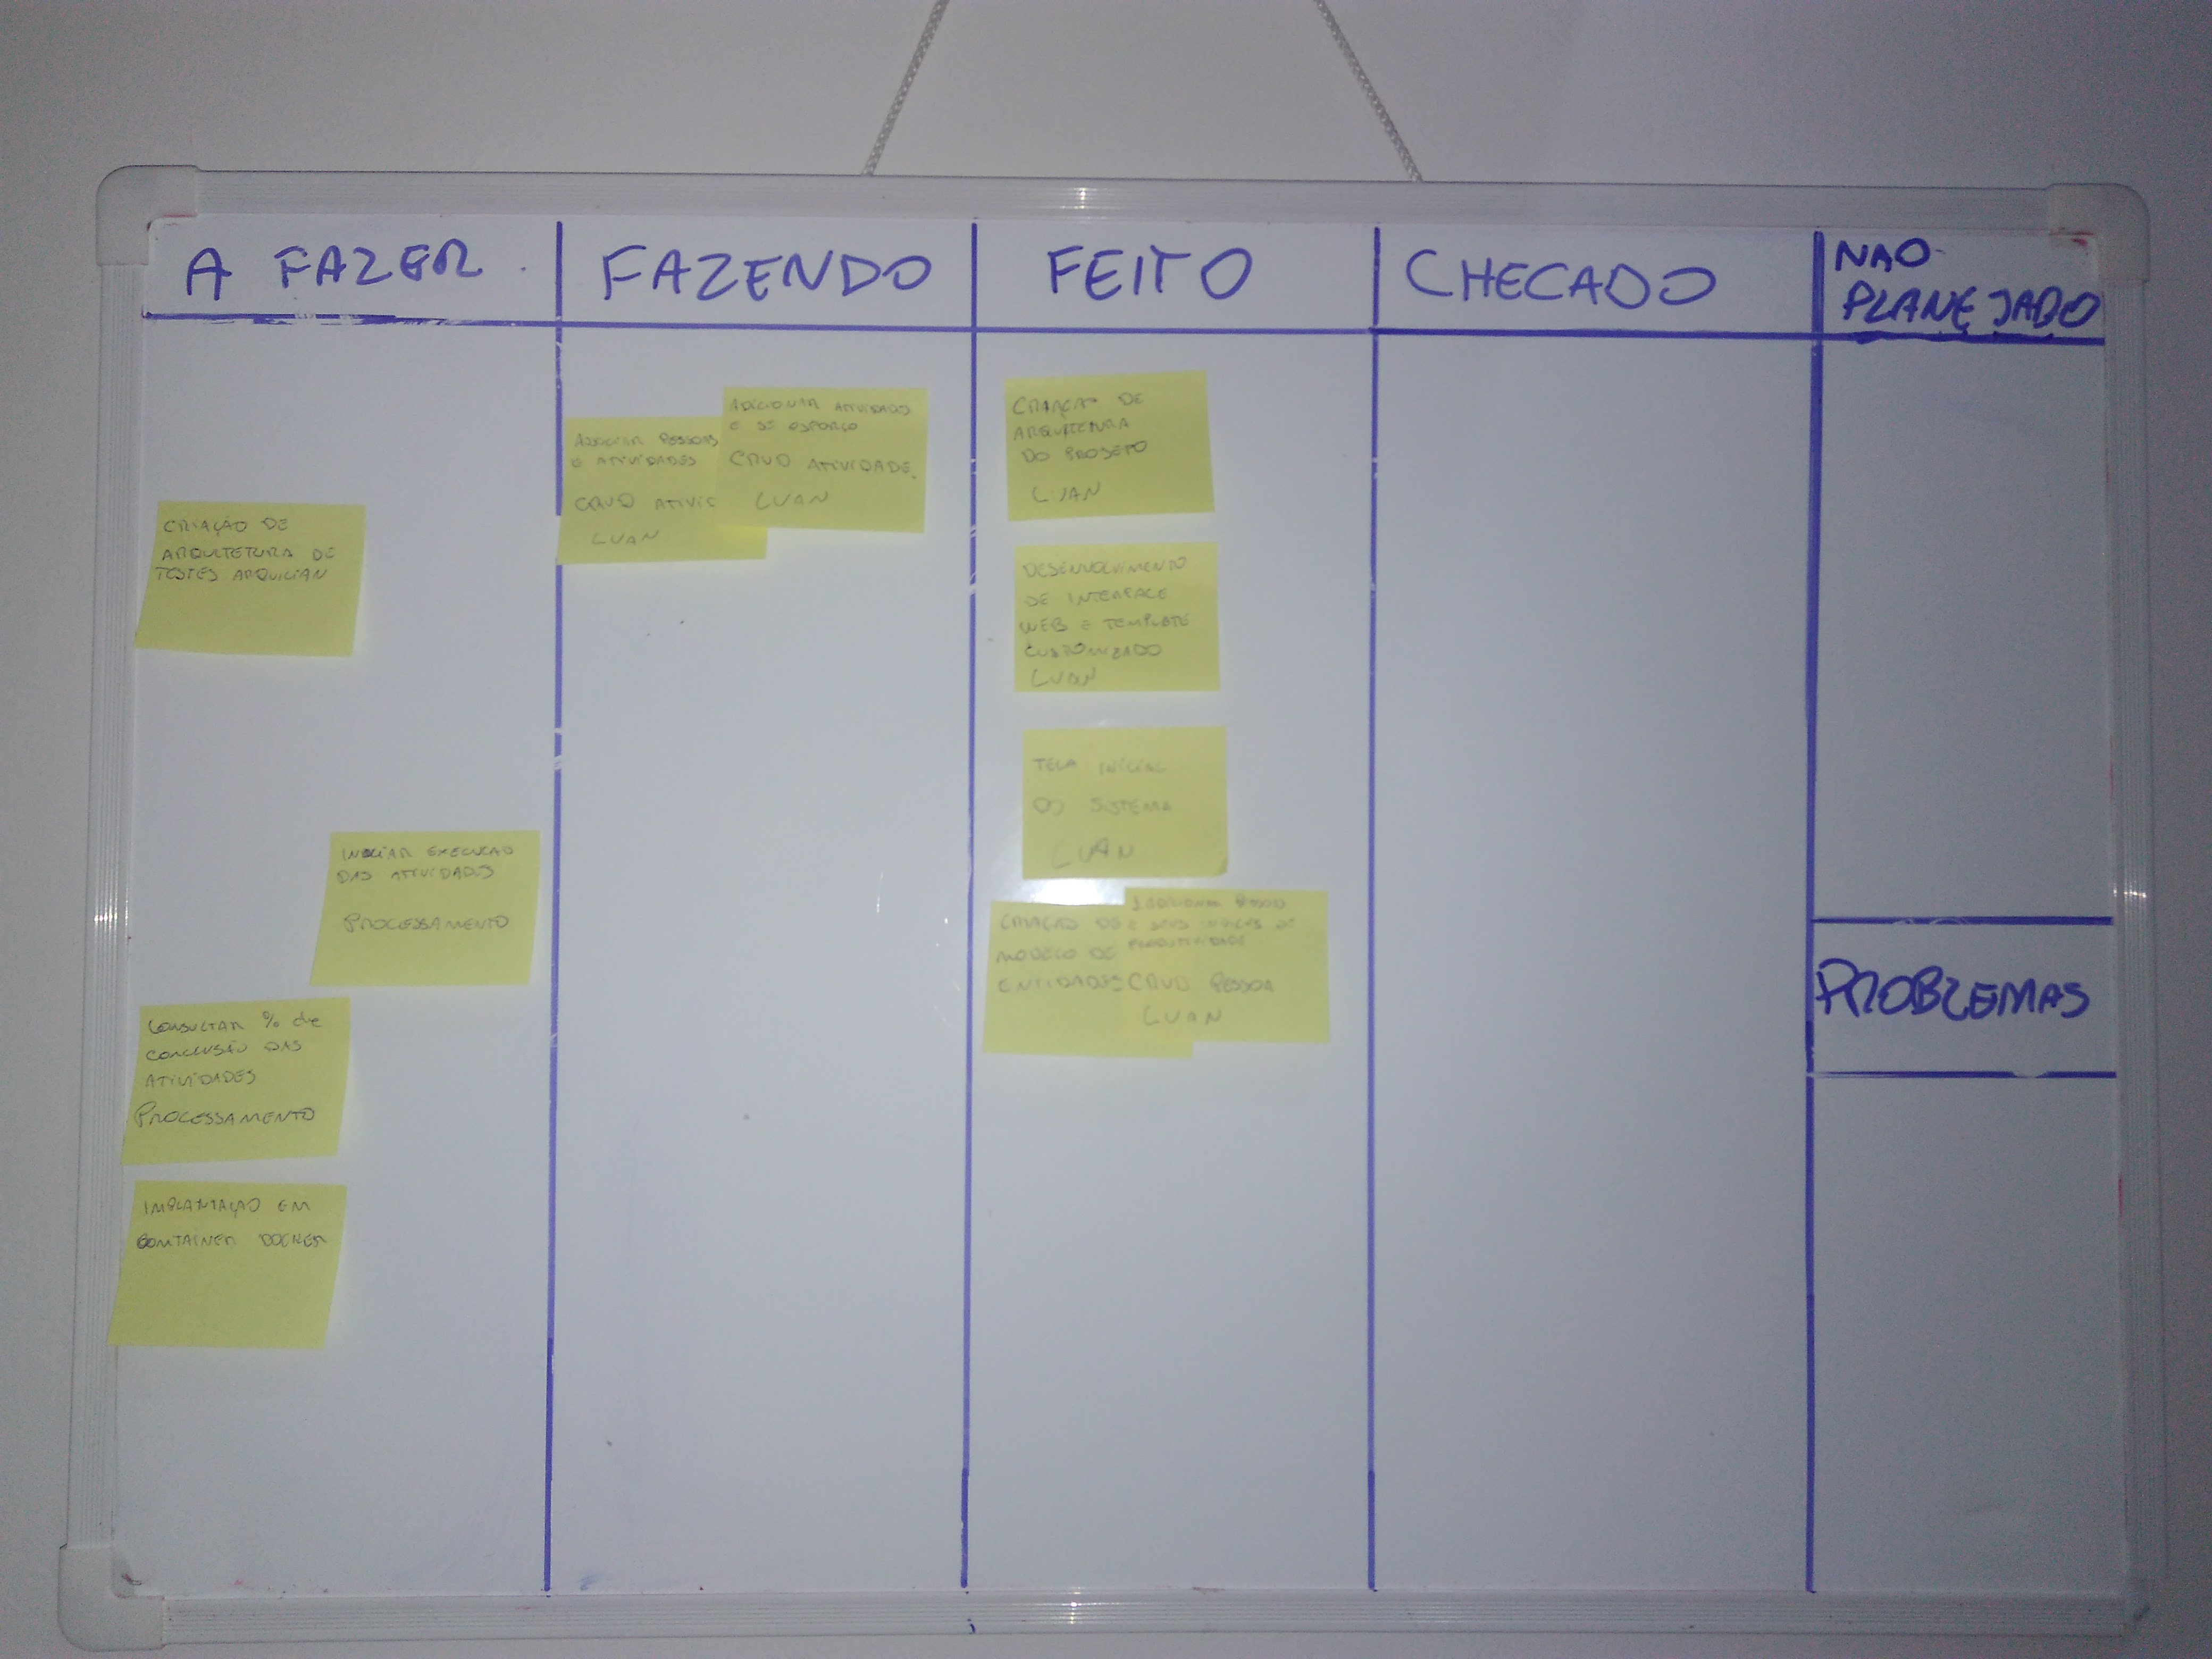 A FAZER
FAZENDO
FEITO
CHECADO
NAO
PLANEJADO
CRIAÇÃO DE
ARQUITETURA DE
TESTES ARQUILIAN
INICIAR EXECUCAO
DAS ATIVIDADES
PROCESSAMENTO
CONSULTAR % de
CONCLUSÃO DAS
ATIVIDADES
PROCESSAMENTO
IMPLANTAÇÃO EM
CONTAINER DOCKER
ASSOCIAR PESSOAS
E ATIVIDADES
CRUD ATIVID
LUAN
ADICIONAR ATIVIDADES
E SE ESFORÇO
CRUD ATIVIDADE.
LUAN
CRIAÇÃO DE
ARQUITETURA
DO PROJETO
LUAN
DESENVOLVIMENTO
DE INTERFACE
WEB E TEMPLATE
CUSTOMIZADO
LUAN
TELA INICIAL
DO SISTEMA
LUAN
CRIAÇÃO DE
MODELO DE
ENTIDADES
ADICIONAR PESSOA
E SEUS INDICES DE
PRODUTIVIDADE
CRUD PESSOA
LUAN
PROBLEMAS